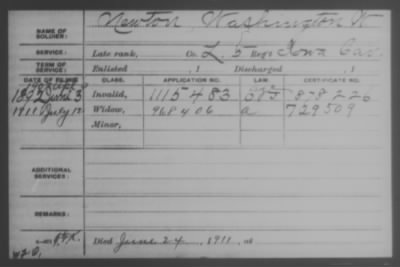 NAME OF SOLDIER: Newton, Washington W
SERVICE: Late rank, Co. L 5 Reg't Iowa Cav.
TERM OF SERVICE: Enlisted , 1 Discharged , 1
DATE OF FILING CLASS. APPLICATION NO. LAW. CERTIFICATE NO.
1892 June 3 Invalid, 1115483 878226
1911 July 12 Widow, 968406 a 729509
Minor,
ADDITIONAL SERVICES:
REMARKS:
Died June 24, 1911, at